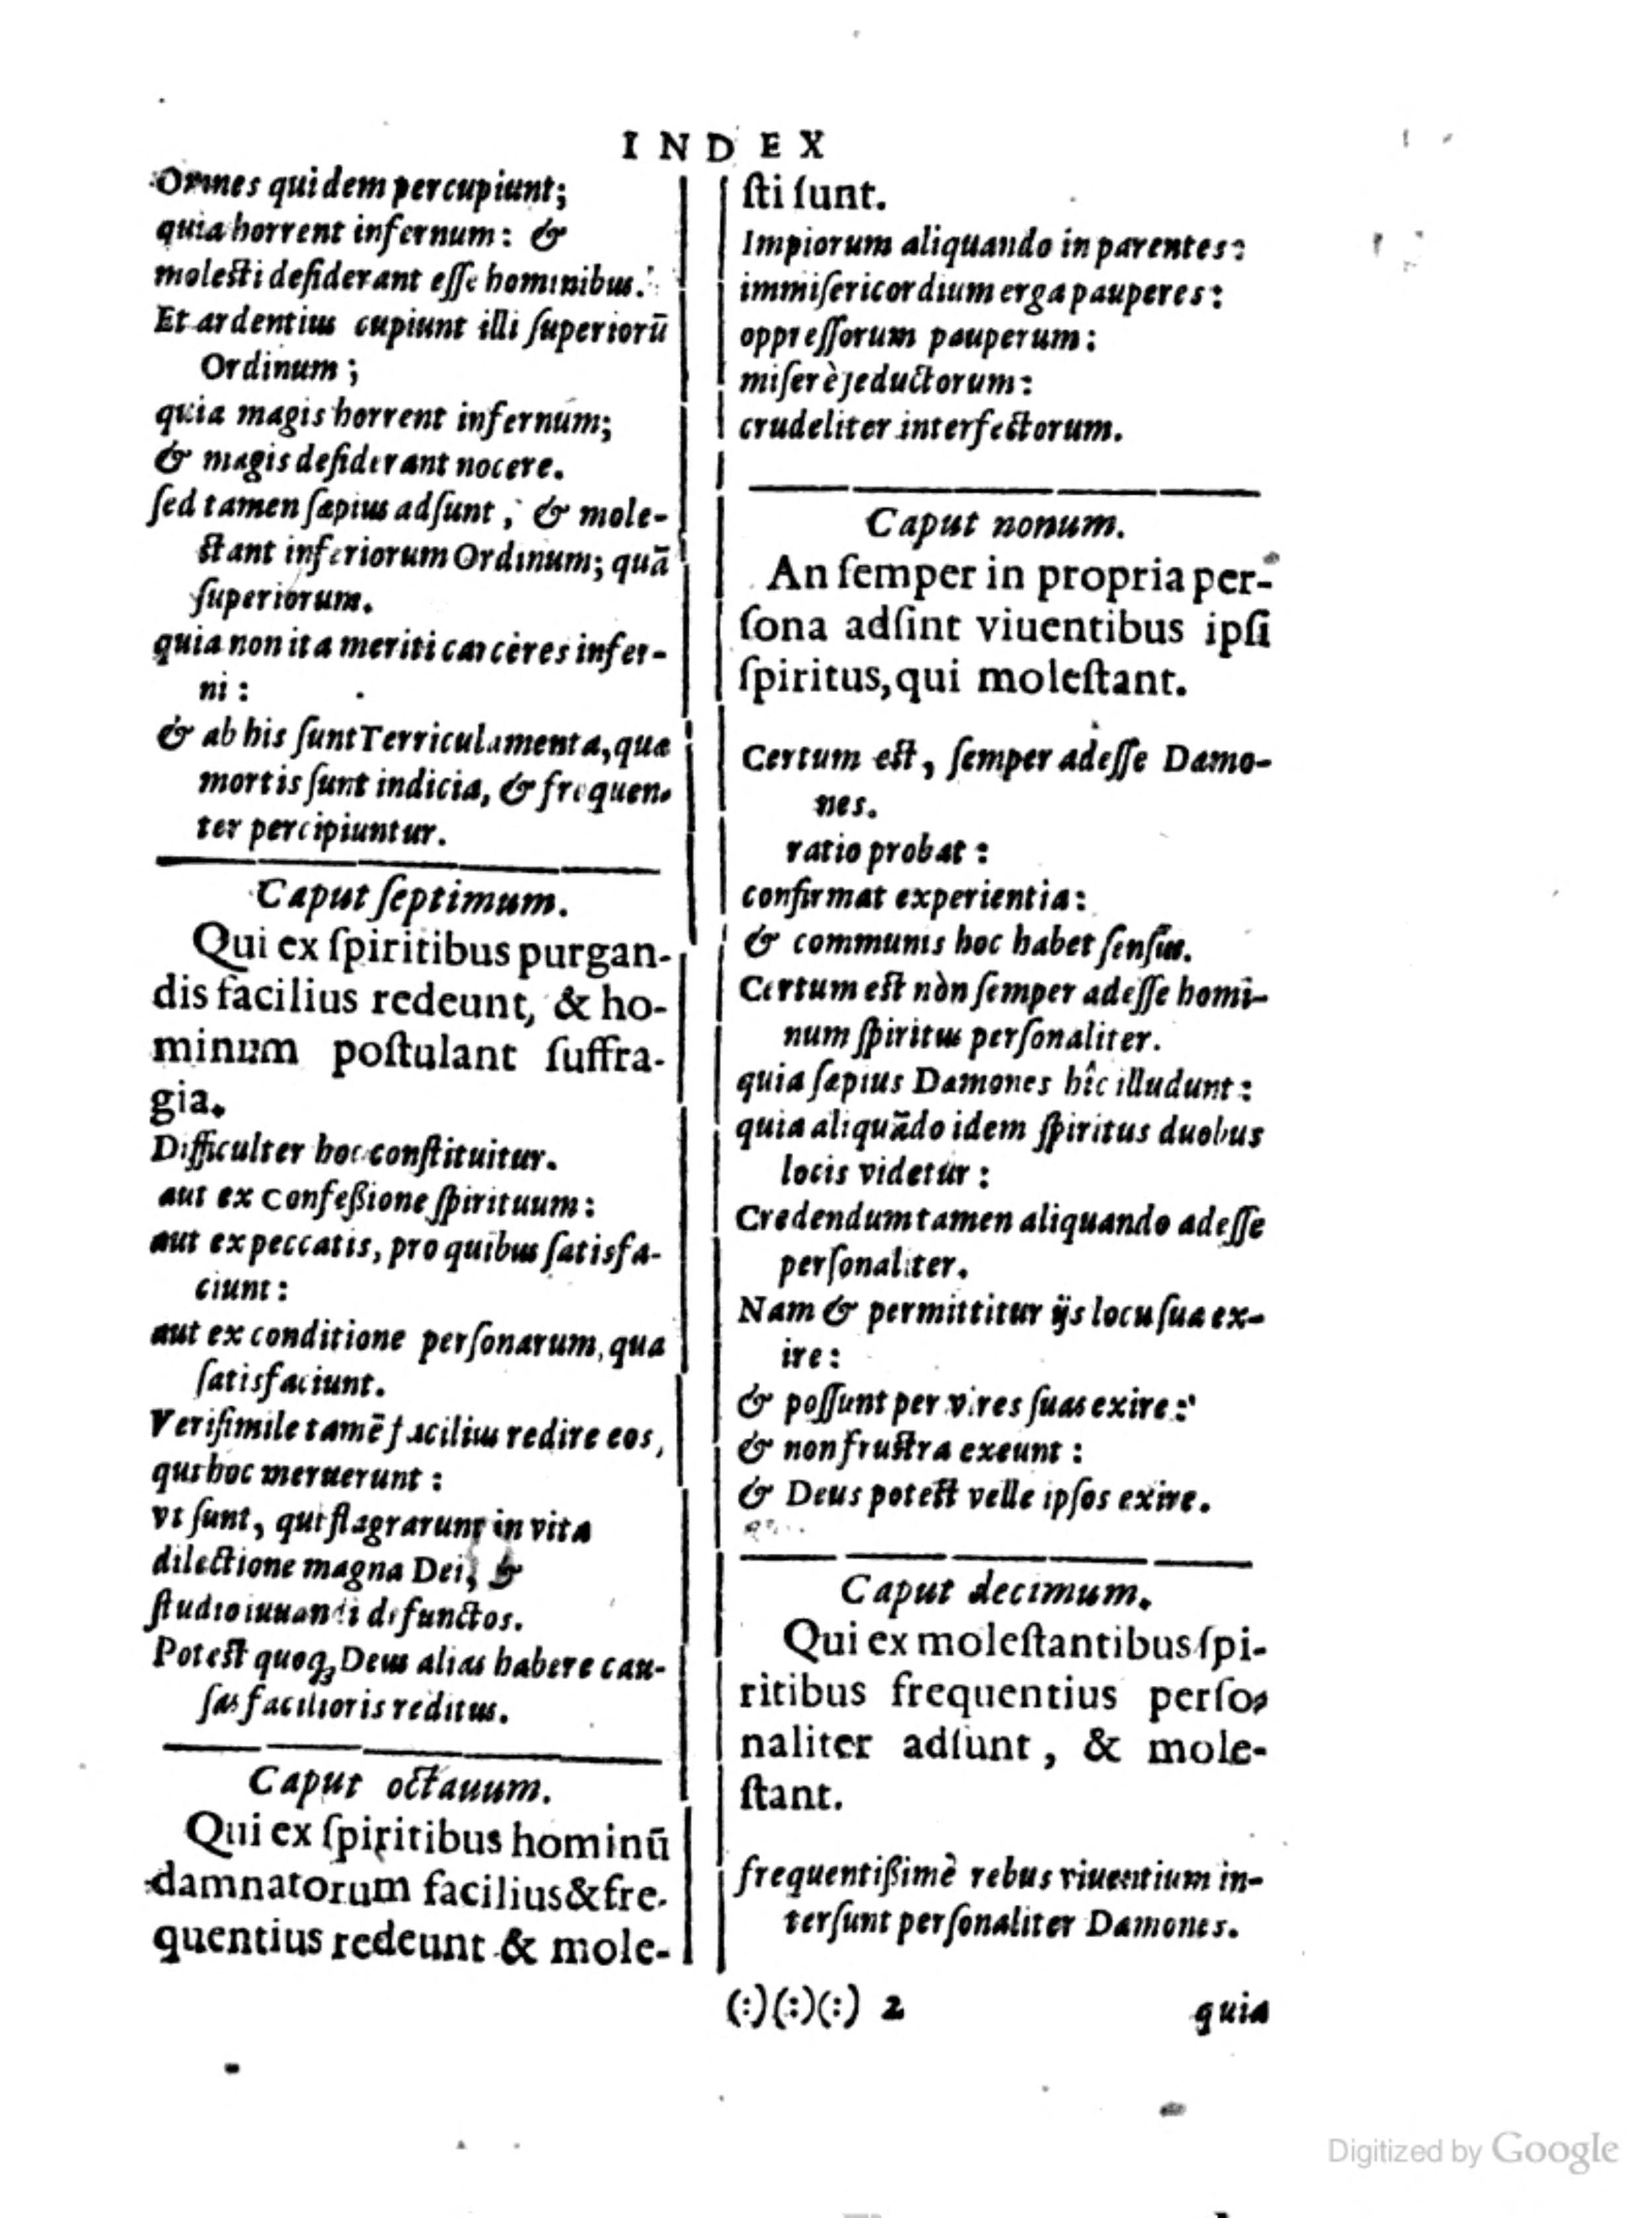 INDEX
Omnes quidem percupiunt;
quia horrent infernum: &
molesti desiderant esse hominibus.
Et ardentius cupiunt illi superiorū
Ordinum;
quia magis horrent infernum;
& magis desiderant nocere.
sed tamen sæpius adsunt, & mole-
stant inferiorum Ordinum; quā
superiorum.
quia non ita meriti carceres infer-
ni:
& ab his sunt Terriculamenta, quæ
mortis sunt indicia, & frequen-
ter percipiuntur.
Caput septimum.
Qui ex spiritibus purgan-
dis facilius redeunt, & ho-
minum postulant suffra-
gia.
Difficulter hoc constituitur.
aut ex Confeßione spirituum:
aut ex peccatis, pro quibus satisfa-
ciunt:
aut ex conditione personarum, qua
satisfaciunt.
Verisimile tamē facilius redire eos,
qui hoc meruerunt:
vt sunt, qui flagrarunt in vita
dilectione magna Dei, &
studio iuuandi defunctos.
Potest quoq; Deus alias habere cau-
sas facilioris reditus.
Caput octauum.
Qui ex spiritibus hominū
damnatorum facilius & fre-
quentius redeunt & mole-
sti sunt.
Impiorum aliquando in parentes:
immisericordium erga pauperes:
oppressorum pauperum:
miserè seductorum:
crudeliter interfectorum.
Caput nonum.
An semper in propria per-
sona adsint viuentibus ipsi
spiritus, qui molestant.
Certum est, semper adesse Damo-
nes.
ratio probat:
confirmat experientia:
& communis hoc habet sensus.
Certum est nòn semper adesse homi-
num spiritus personaliter.
quia sæpius Damones hîc illudunt:
quia aliquādo idem spiritus duobus
locis videtur:
Credendum tamen aliquando adesse
personaliter.
Nam & permittitur ijs locu sua ex-
ire:
& possunt per vires suas exire:
& non frustra exeunt:
& Deus potest velle ipsos exire.
Caput decimum.
Qui ex molestantibus spi-
ritibus frequentius perso-
naliter adsunt, & mole-
stant.
frequentißimè rebus viuentium in-
tersunt personaliter Damones.
(:)(:)(:) 2 quia
Digitized by Google